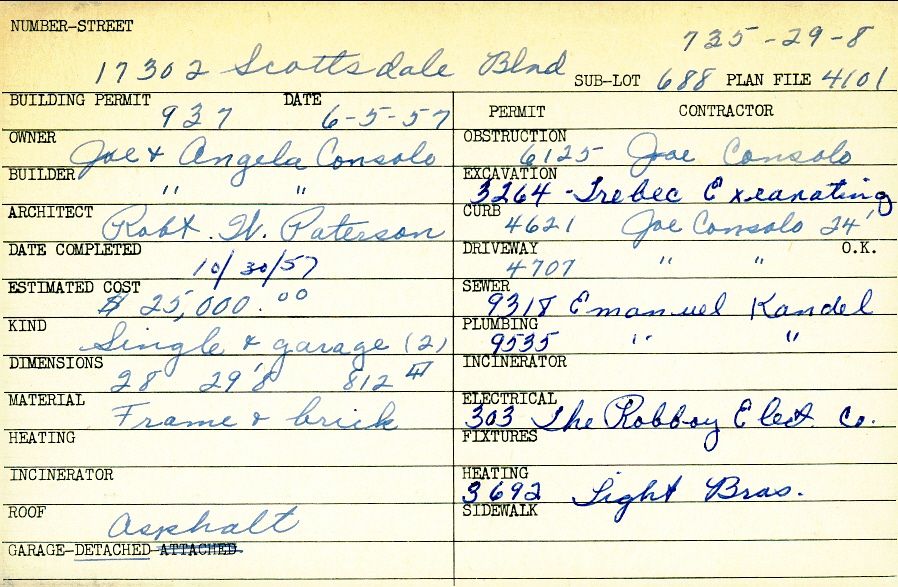 NUMBER-STREET
735-29-8
17302 Scottsdale Blvd
SUB-LOT 688 PLAN FILE 4101
BUILDING PERMIT DATE
937 6-5-57
OWNER
Joe & Angela Consolo
BUILDER
" "
ARCHITECT
Robt. W. Paterson
DATE COMPLETED
10/30/57
ESTIMATED COST
$ 25,000.00
KIND
Single & garage (2)
DIMENSIONS
28 29'8 812 #
MATERIAL
Frame & brick
HEATING
INCINERATOR
ROOF
Asphalt
GARAGE-DETACHED-ATTACHED
PERMIT CONTRACTOR
OBSTRUCTION
6125 Joe Consolo
EXCAVATION
3264 - Trebec Excavating
CURB
4621 Joe Consolo 24'
DRIVEWAY O.K.
4707 " "
SEWER
9318 Emanuel Kandel
PLUMBING
9535 " "
INCINERATOR
ELECTRICAL
303 The Robboy Elect. Co.
FIXTURES
HEATING
3692 Light Bros.
SIDEWALK